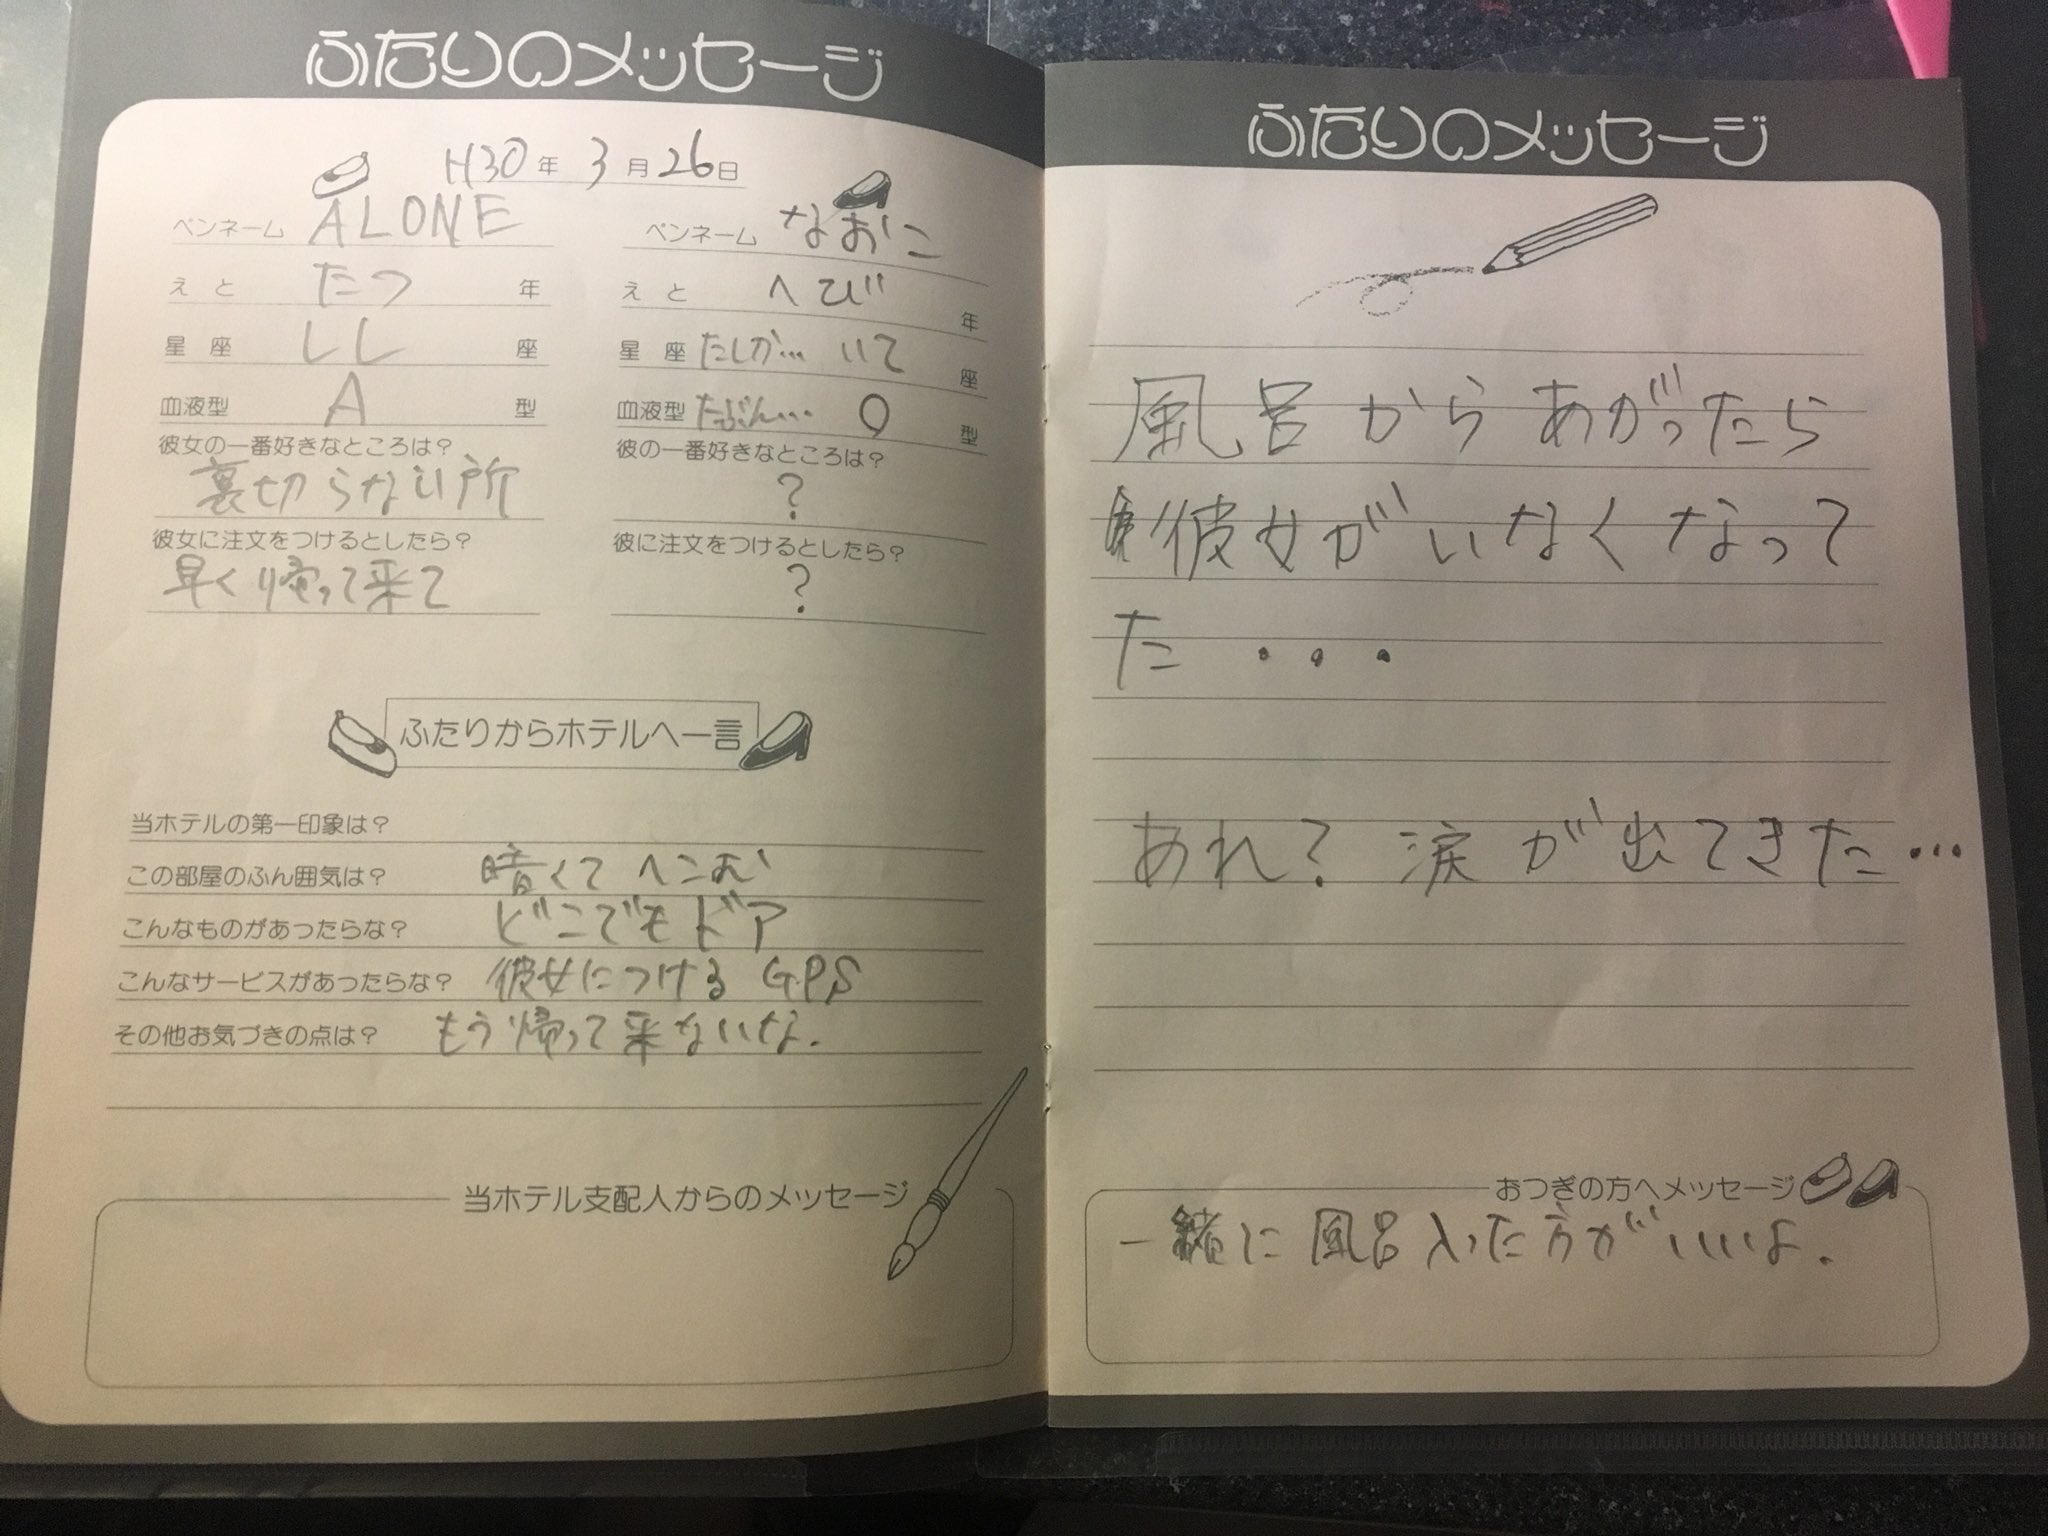 ふたりのメッセージ
H30年 3月26日
ペンネーム ALONE
えと たつ 年
星座 しし 座
血液型 A 型
彼女の一番好きなところは?
裏切らない所
彼女に注文をつけるとしたら?
早く帰って来て
ペンネーム なおこ
えと へび 年
星座 たしか… いて 座
血液型 たぶん… O 型
彼の一番好きなところは?
?
彼に注文をつけるとしたら?
?
ふたりからホテルへ一言
当ホテルの第一印象は?
この部屋のふん囲気は? 暗くてヘンぴ
こんなものがあったらな? どこでもドア
こんなサービスがあったらな? 彼女につける GPS
その他お気づきの点は? もう帰って来ないな.
当ホテル支配人からのメッセージ
ふたりのメッセージ
風呂からあがったら
彼女がいなくなって
た ・・・
あれ? 涙が出てきた…
おつぎの方へメッセージ
一緒に風呂入った方がいいよ.